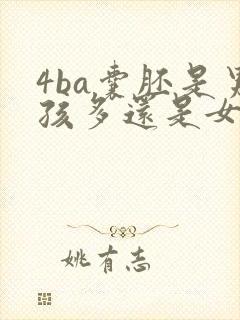 4ba囊胚是男
孩多還是女
姚有志